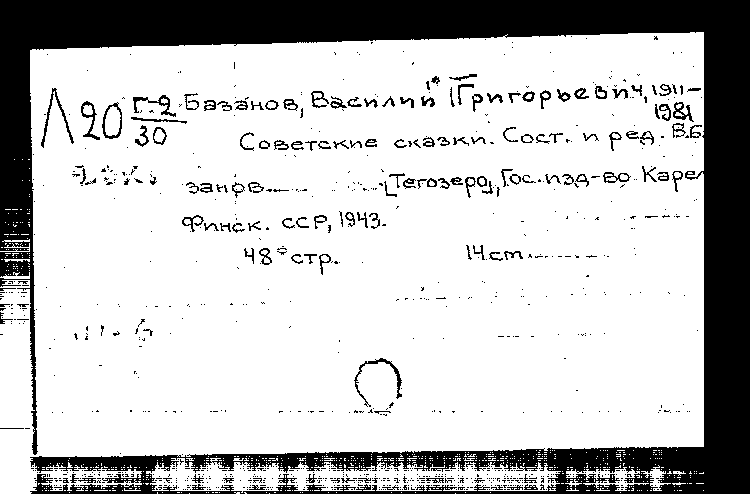 Л20 Г-2/30 Базанов, Василий Григорьевич, 1911-
1981
Советские сказки. Сост. и ред. В.Б
занов
[Тегозеро], Гос. изд-во Карел
Финск. ССР, 1943.
48 стр. 14 cm